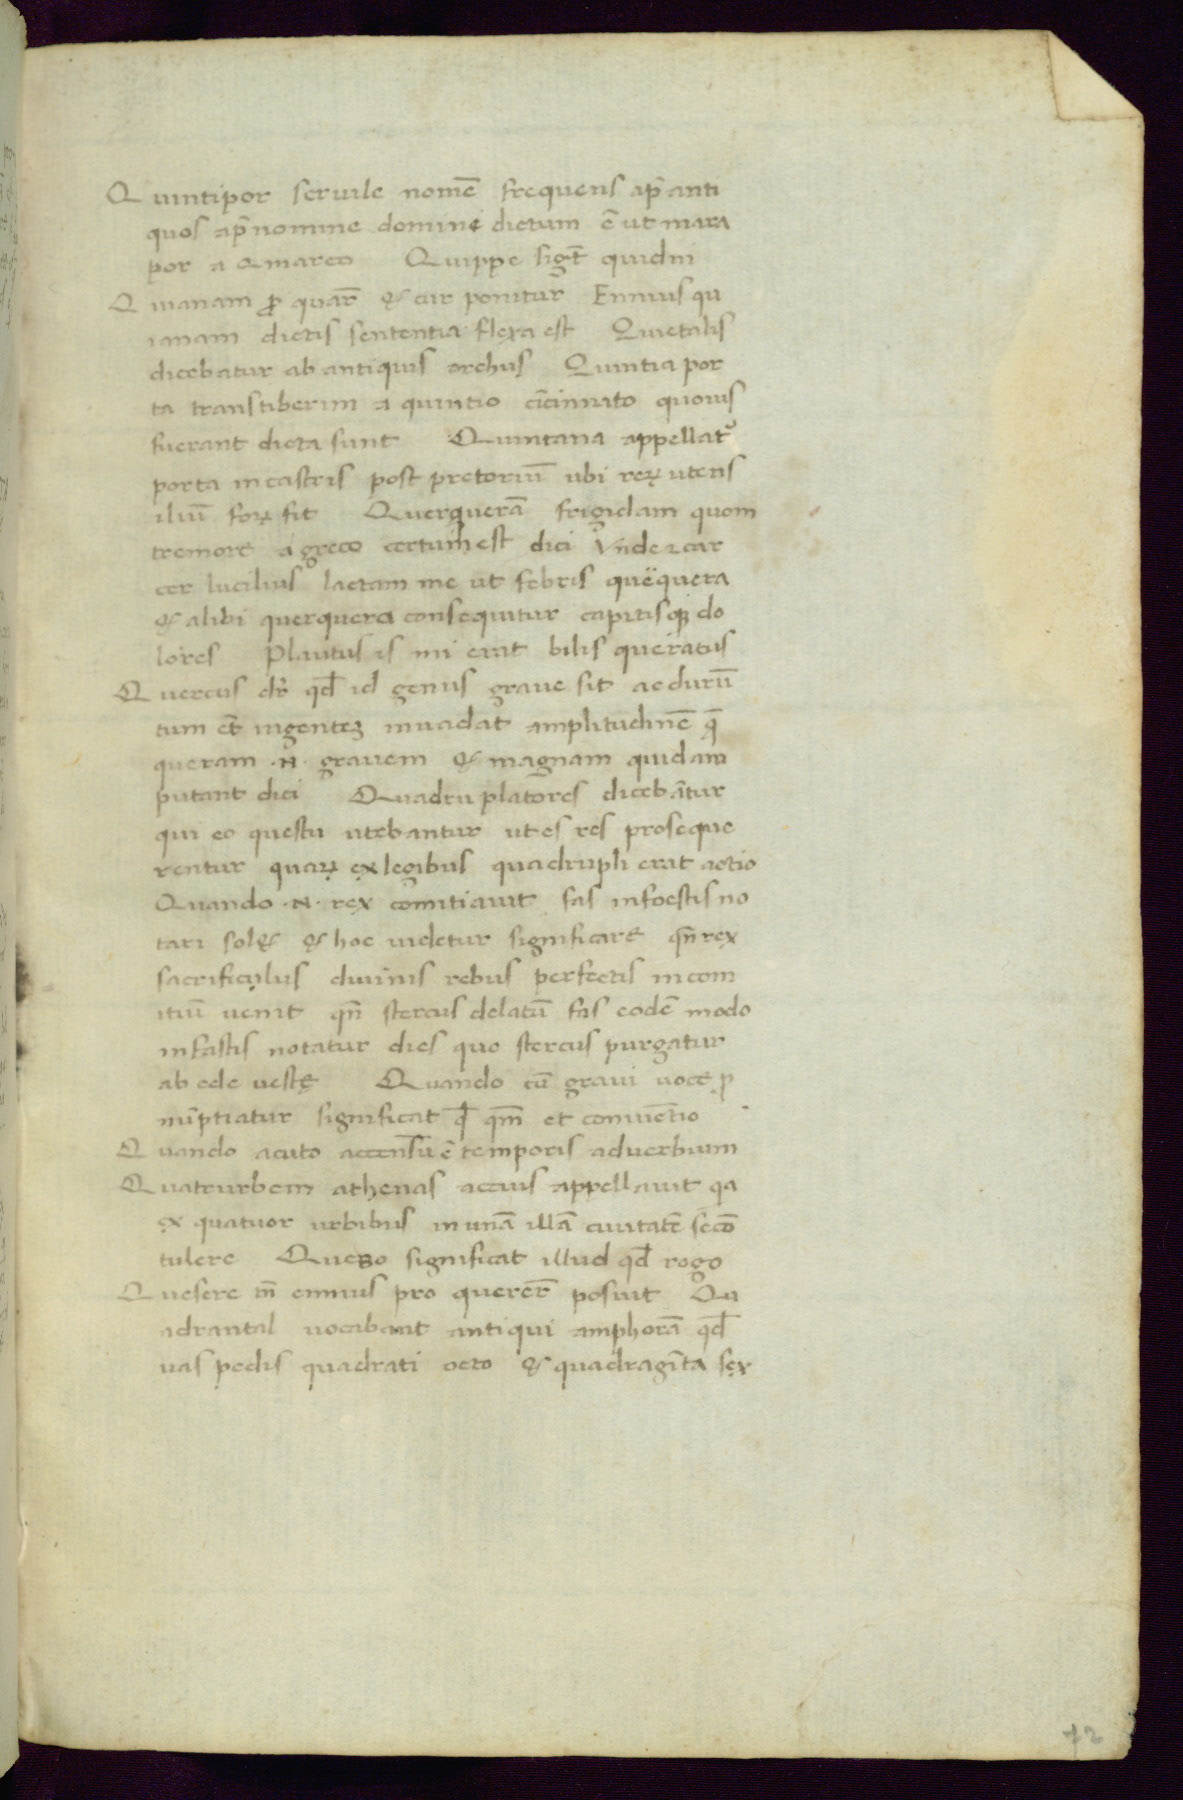 Quintipor seruile nomē frequens ap̄ anti
quos ap̄ nomine domini dictum ē ut mara
por a q marco Quippe sigt̄ quidni
Quianam ꝓ quar̄ & cur ponitur Ennius qu
ianam dictis sententia flexa est Quietalis
dicebatur ab antiquis orchus Quintia por
ta transtiberim a quintio cīcinnato quoius
fuerant dicta sunt Quintana appellat᷑
porta in castris post pretoriū ubi reꝝ utens
iliū foꝝ fit Querquerā frigidam quom
tremore a greco certum est dici Vnde & car
cer lucilius lactam me ut febris queq̈uera
& alibi querquera consequitur capitisqꝫ do
lores Plautus is mi erat bilis queratus
Quercus dr̄ qd̄ id genus graue sit ac durū
tum et̄ ingenteꝫ inuadat amplitudinē q̄
queram ·N· grauem & magnam quidam
putant dici Quadruplatores dicebātur
qui eo questu utebantur ut es res proseque
rentur quaꝝ ex legibus quadrupli erat actio
Quando ·N· rex comitiauit fas infoestis no
tari sol& & hoc uidetur significare qn̄ rex
sacrificulus diuinis rebus perfectis in com
itiū uenit qn̄ stercus delatū fas eodē modo
infastis notatur dies quo stercus purgatur
ab ede uestę Quando cū graui uoce ꝓ
nūptiatur significat qd̄ qm̄ et coniuētio
Quando acuto accensū ē temporis aduerbium
Quatrurbem athenas accius appellauit qa
ex quatuor urbibus in unā illā ciuitatē secō
tulere Queso significat illud qd̄ rogo
Quesere n̄ ennius pro querer̄ posuit Qu
adrantal uocabant antiqui amphorā qd̄
uas pedis quadrati octo & quadragīta sex
72